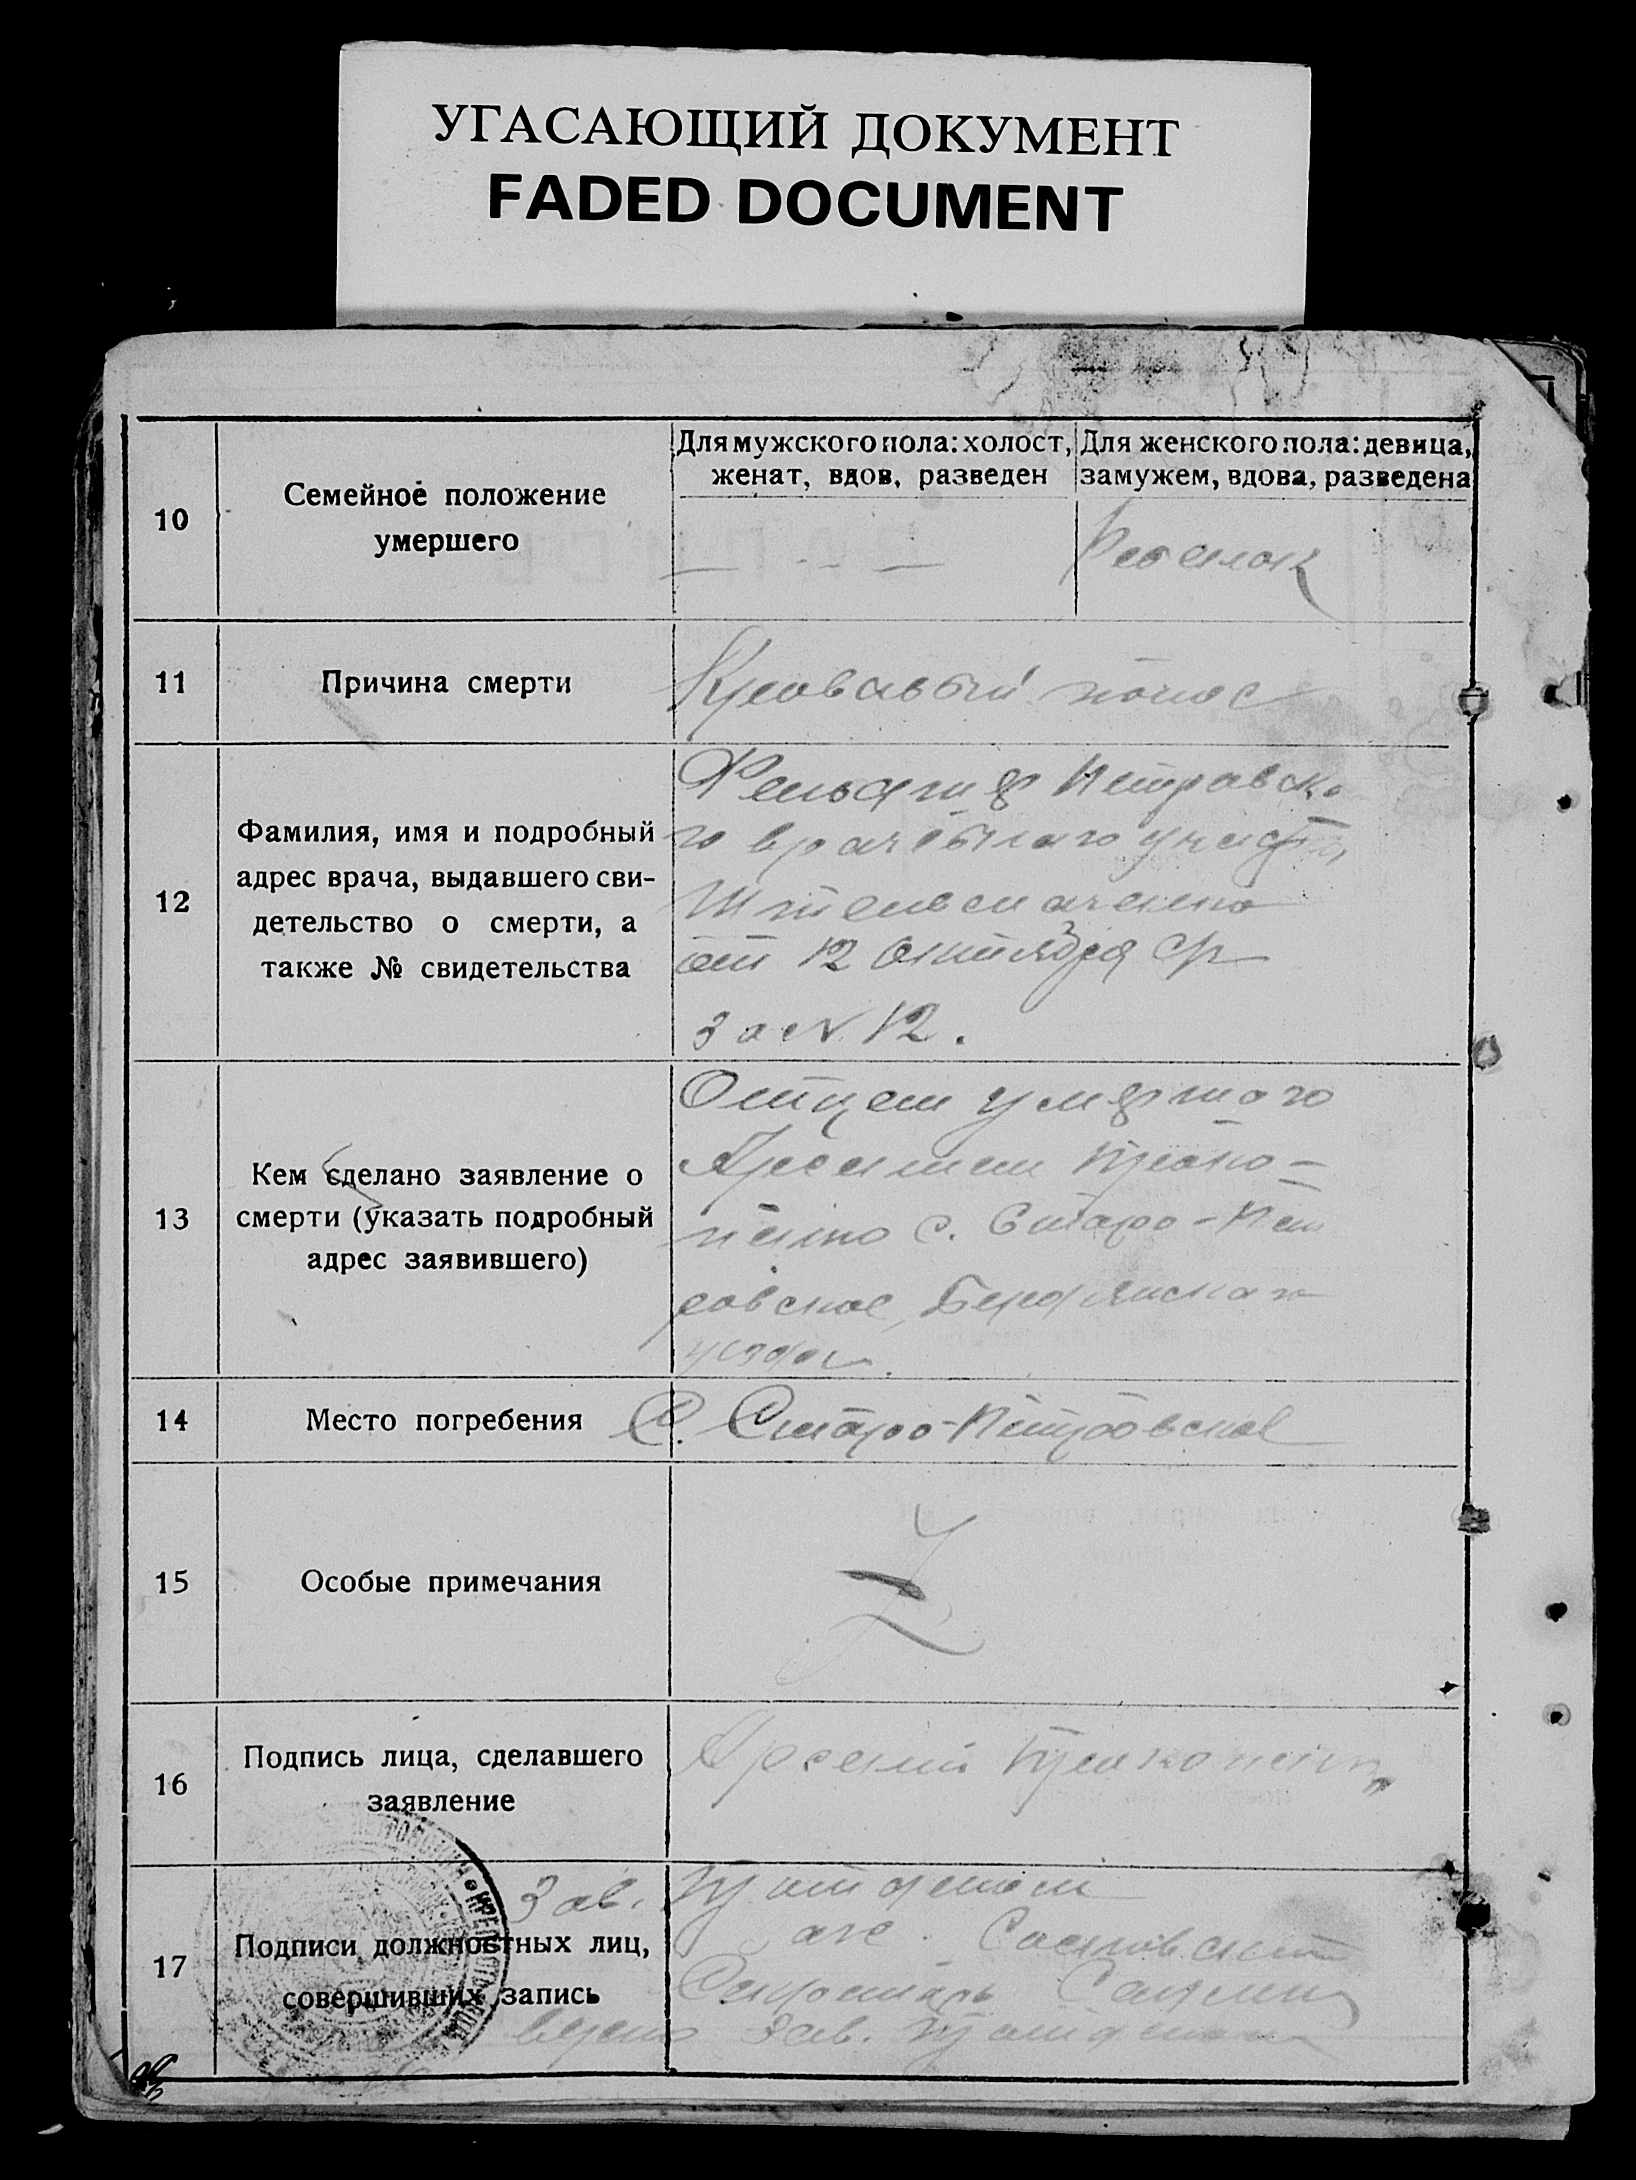 УГАСАЮЩИЙ ДОКУМЕНТ
FADED DOCUMENT
10
Семейное положение
умершего
Для мужского пола: холост,
женат, вдов, разведен
Для женского пола: девица,
замужем, вдова, разведена
Ребенок
11
Причина смерти
Кровавый понос
12
Фамилия, имя и подробный
адрес врача, выдавшего сви-
детельство о смерти, а
также № свидетельства
Фельдшер Петровско
го врачебного участка,
от 12 октября ср
за N 12.
13
Кем сделано заявление о
смерти (указать подробный
адрес заявившего)
Отцем умершого
Арсением Проко-
пенко с. Старо-Пет
ровское, Бердянского
уезда.
14
Место погребения
С. Старо-Петровское
15
Особые примечания
Z
16
Подпись лица, сделавшего
заявление
Арсений Прокопенко
17
Подписи должностных лиц,
совершивших запись
Зав.
Секретарь
верно Зав.